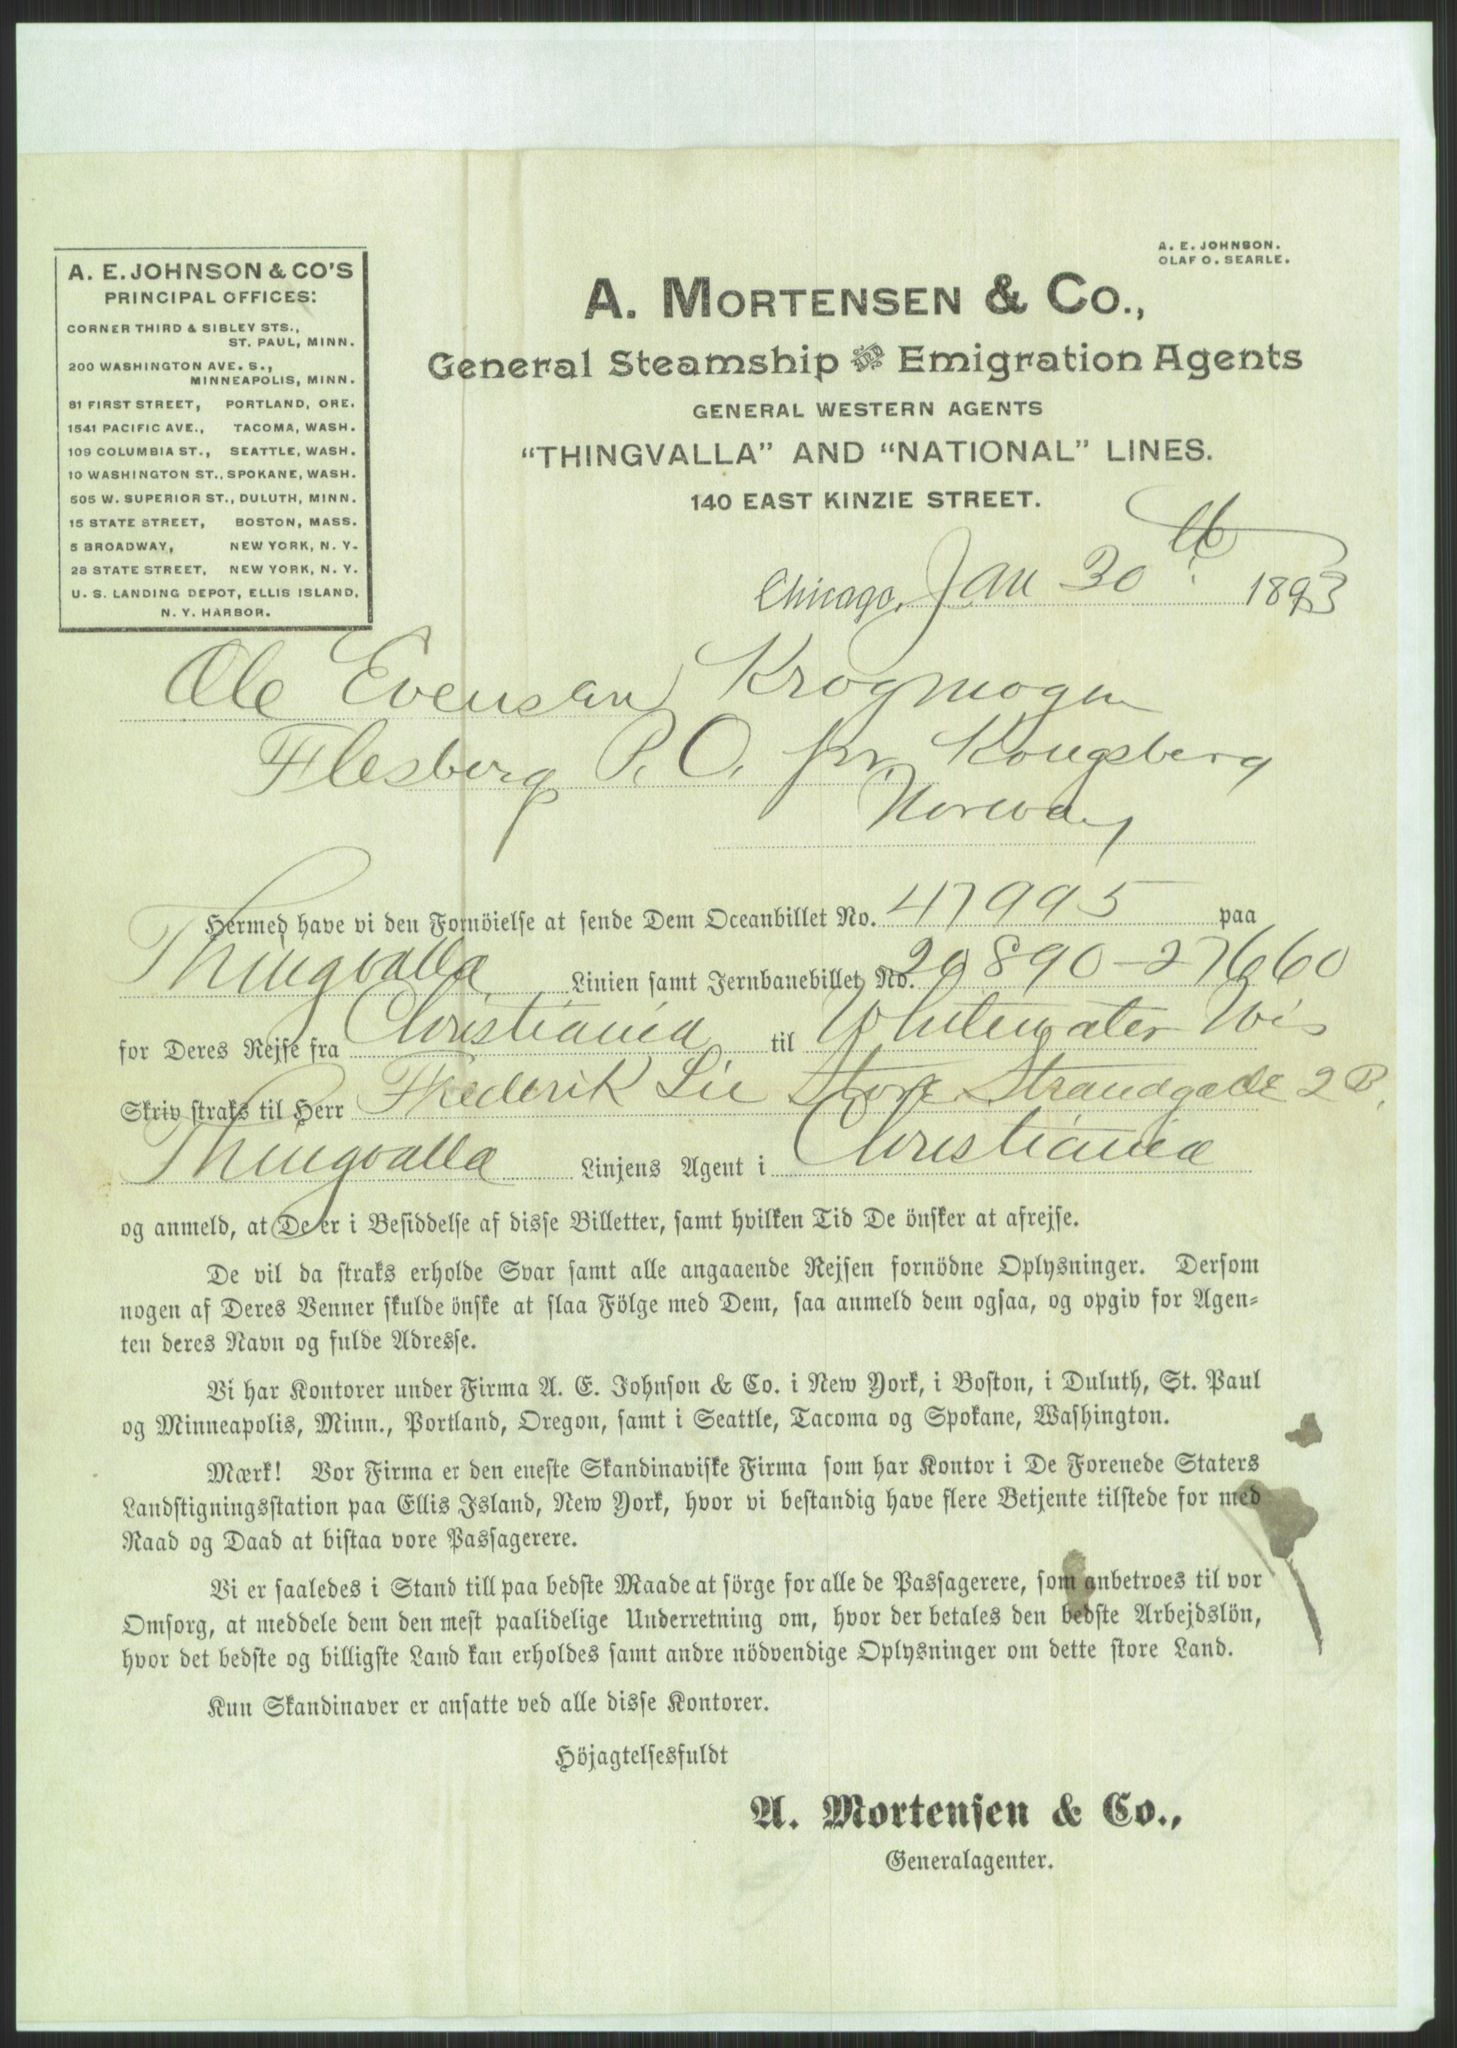 A. E. JOHNSON & CO'S
PRINCIPAL OFFICES:
CORNER THIRD & SIBLEY STS.,
ST. PAUL, MINN.
200 WASHINGTON AVE. S.,
MINNEAPOLIS, MINN.
81 FIRST STREET, PORTLAND, ORE.
1541 PACIFIC AVE., TACOMA, WASH.
109 COLUMBIA ST., SEATTLE, WASH.
10 WASHINGTON ST., SPOKANE, WASH.
505 W. SUPERIOR ST., DULUTH, MINN.
15 STATE STREET, BOSTON, MASS.
5 BROADWAY, NEW YORK, N. Y.
28 STATE STREET, NEW YORK, N. Y.
U. S. LANDING DEPOT, ELLIS ISLAND,
N. Y. HARBOR.
A. E. JOHNSON.
OLAF O. SEARLE.
A. MORTENSEN & CO.,
General Steamship and Emigration Agents
GENERAL WESTERN AGENTS
"THINGVALLA" AND "NATIONAL" LINES.
140 EAST KINZIE STREET.
Chicago, Jan 30th 1893
Ole Evensen Krogmogen
Flesberg P. O. pr Kongsberg
Norway
Hermed have vi den Fornöielse at sende Dem Oceanbillet No. 47995 paa
Thingvalla Linien samt Jernbanebillet No. 20890-27660
for Deres Rejse fra Christiania til Whitewater Wis
Skriv straks til Herr Frederik Lie Store Strandgade 2 B.
Thingvalla Linjens Agent i Christiania
og anmeld, at De er i Besiddelse af disse Billetter, samt hvilken Tid De önsker at afrejse.
De vil da straks erholde Svar samt alle angaaende Rejsen fornödne Oplysninger. Dersom
nogen af Deres Venner skulde önske at slaa Fölge med Dem, saa anmeld dem ogsaa, og opgiv for Agen-
ten deres Navn og fulde Adresse.
Vi har Kontorer under Firma A. E. Johnson & Co. i New York, i Boston, i Duluth, St. Paul
og Minneapolis, Minn., Portland, Oregon, samt i Seattle, Tacoma og Spokane, Washington.
Mærk! Vor Firma er den eneste Skandinaviske Firma som har Kontor i De Forenede Staters
Landstigningsstation paa Ellis Island, New York, hvor vi bestandig have flere Betjente tilstede for med
Raad og Daad at bistaa vore Passagerere.
Vi er saaledes i Stand till paa bedste Maade at sörge for alle de Passagerere, som anbetroes til vor
Omsorg, at meddele dem den mest paalidelige Underretning om, hvor der betales den bedste Arbejdslön,
hvor det bedste og billigste Land kan erholdes samt andre nödvendige Oplysninger om dette store Land.
Kun Skandinaver er ansatte ved alle disse Kontorer.
Höjagtelsesfuldt
A. Mortensen & Co.,
Generalagenter.